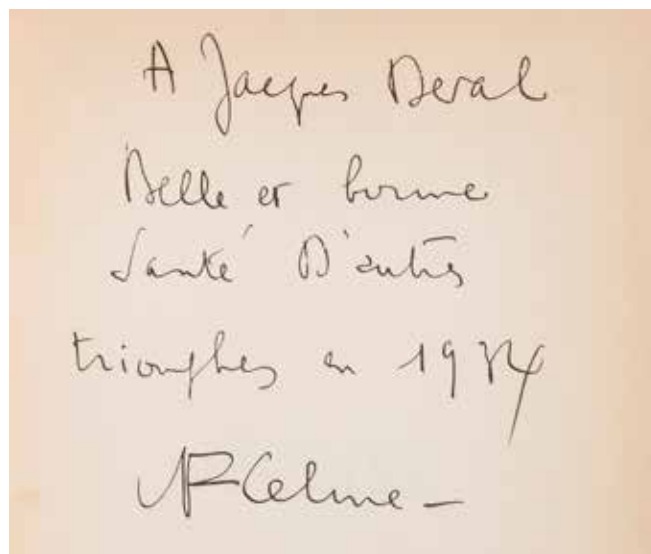 A Jacques Deval
Belle et bonne
Santé D'autres
triomphes en 1934
LFCeline